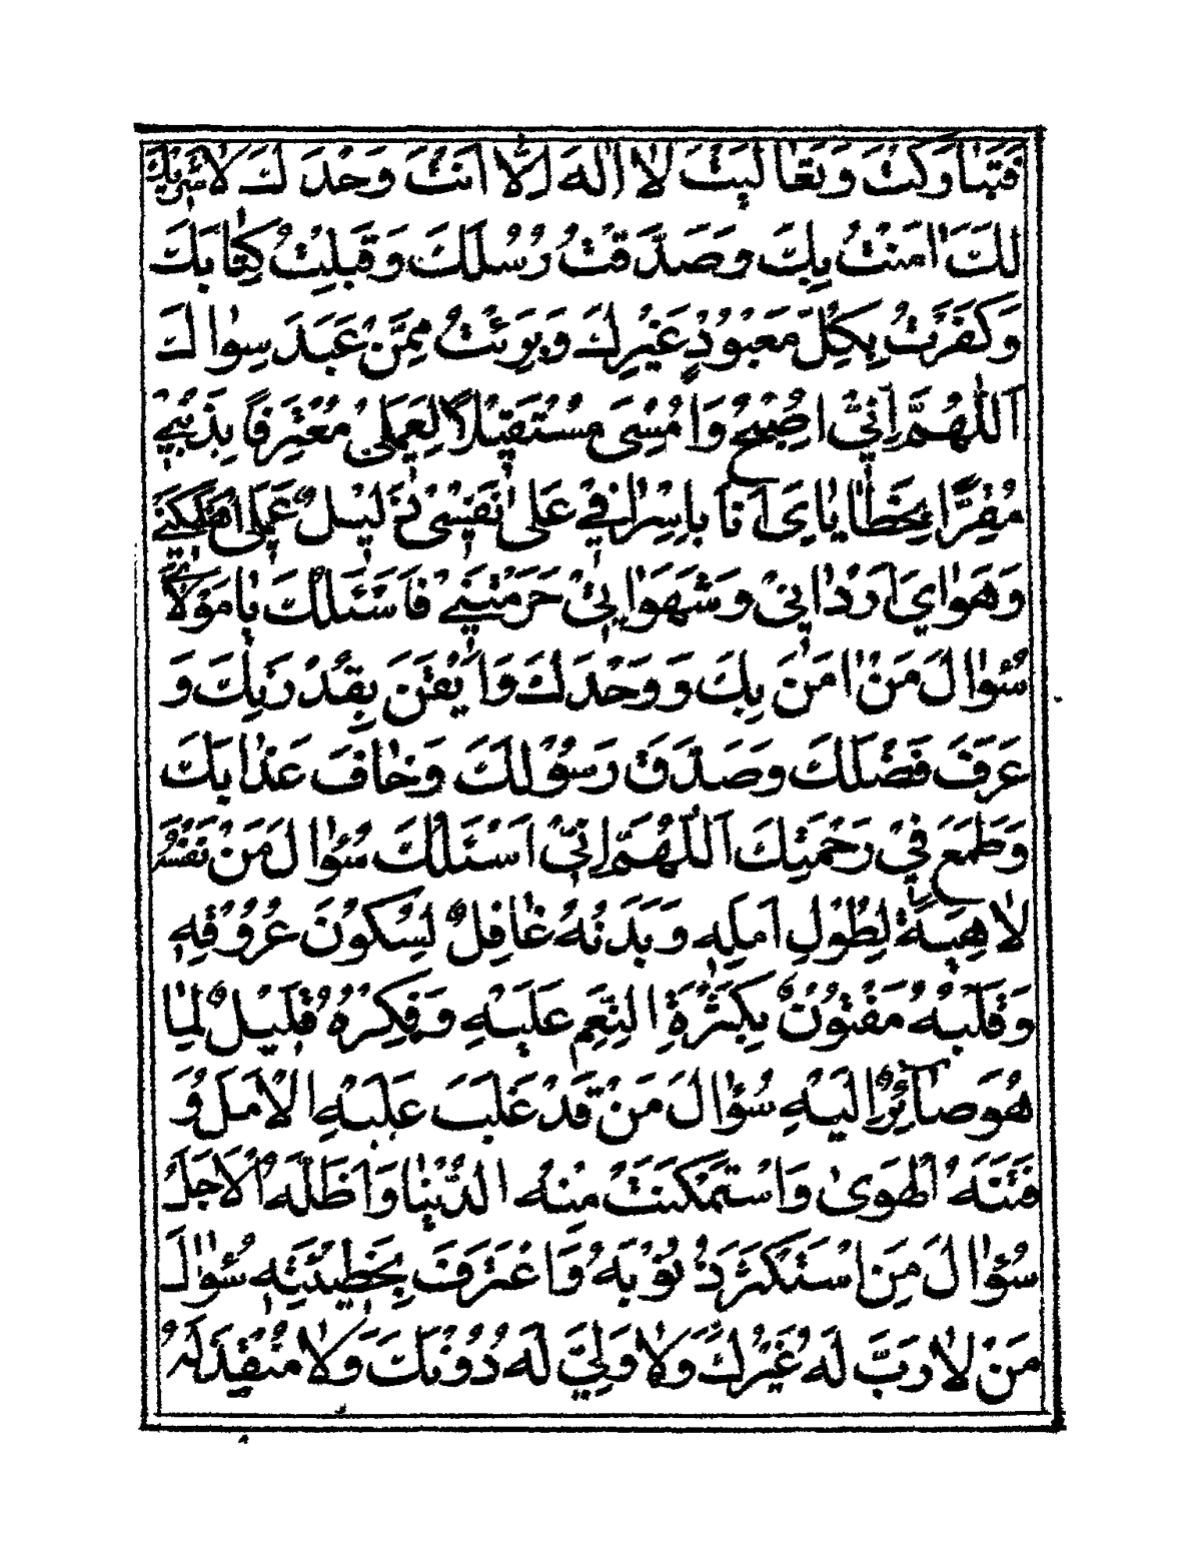 فَتَبٰارَكْتَ وَتَعٰالَيْتَ لٰا اِلٰهَ اِلّٰا اَنْتَ وَحْدَكَ لٰا شَرِيْكَ
لَكَ اٰمَنْتُ بِكَ وَصَدَّقْتُ رُسُلَكَ وَقَبِلْتُ كِتٰابَكَ
وَكَفَرْتُ بِكُلِّ مَعْبُوْدٍ غَيْرِكَ وَبَرِئْتُ مِمَّنْ عَبَدَ سِوٰاكَ
اَللّٰهُمَّ اِنِّيْ اُصْبِحُ وَاُمْسِىْ مُسْتَقِيْلًا لِعَمَلِىْ مُعْتَرِفًا بِذَنْبِيْ
مُقِرًّا بِخَطٰايٰاىَ اَنَا بِاِسْرٰافِيْ عَلىٰ نَفْسِىْ ذَلِيْلٌ عَمَلِىْ اَهْلَكَنِيْ
وَهَوٰايَ اَرْدٰانِىْ وَشَهَوٰاتِىْ حَرَمَتْنِيْ فَاَسْئَلُكَ يٰا مَوْلٰايَ
سُؤٰالَ مَنْ اٰمَنَ بِكَ وَ وَحْدَكَ وَاَيْقَنَ بِقُدْرَتِكَ وَ
عَرَفَ فَضْلَكَ وَصَدَّقَ رَسُوْلَكَ وَخٰافَ عَذٰابَكَ
وَطَمَعَ فِيْ رَحْمَتِكَ اَللّٰهُمَّ اِنِّىْ اَسْئَلُكَ سُؤٰالَ مَنْ نَفْسُهُ
لٰاهِيَةٌ لِطُوْلِ اَمَلِهِ وَبَدَنُهُ غٰافِلٌ لِسُكُوْنِ عُرُوْقِهِ
وَقَلْبُهُ مَفْتُوْنٌ بِكَثْرَةِ النِّعَمِ عَلَيْهِ وَفِكْرُهُ قَلِيْلٌ لِمٰا
هُوَ صٰآئِرٌ اِلَيْهِ سُؤٰالَ مَنْ قَدْ غَلَبَ عَلَيْهِ الْاَمَلُ وَ
فَتَنَهُ الْهَوىٰ وَاسْتَمْكَنَتْ مِنْهُ الدُّنْيٰا وَاَظَلَّهُ الْاَجَلُ
سُؤٰالَ مَنِ اسْتَكْثَرَ ذُنُوْبَهُ وَاعْتَرَفَ بِخَطِيْئَتِهِ سُؤٰالَ
مَنْ لٰا رَبَّ لَهُ غَيْرُكَ وَلٰا وَلِيَّ لَهُ دُوْنَكَ وَلٰا مُنْقِذَ لَهُ